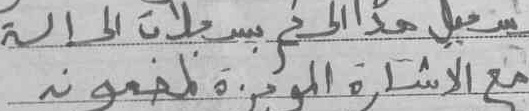 تسجيل هذا الحكم بسجلات الحالة
مع الاشارة الموجزة لمضمونه